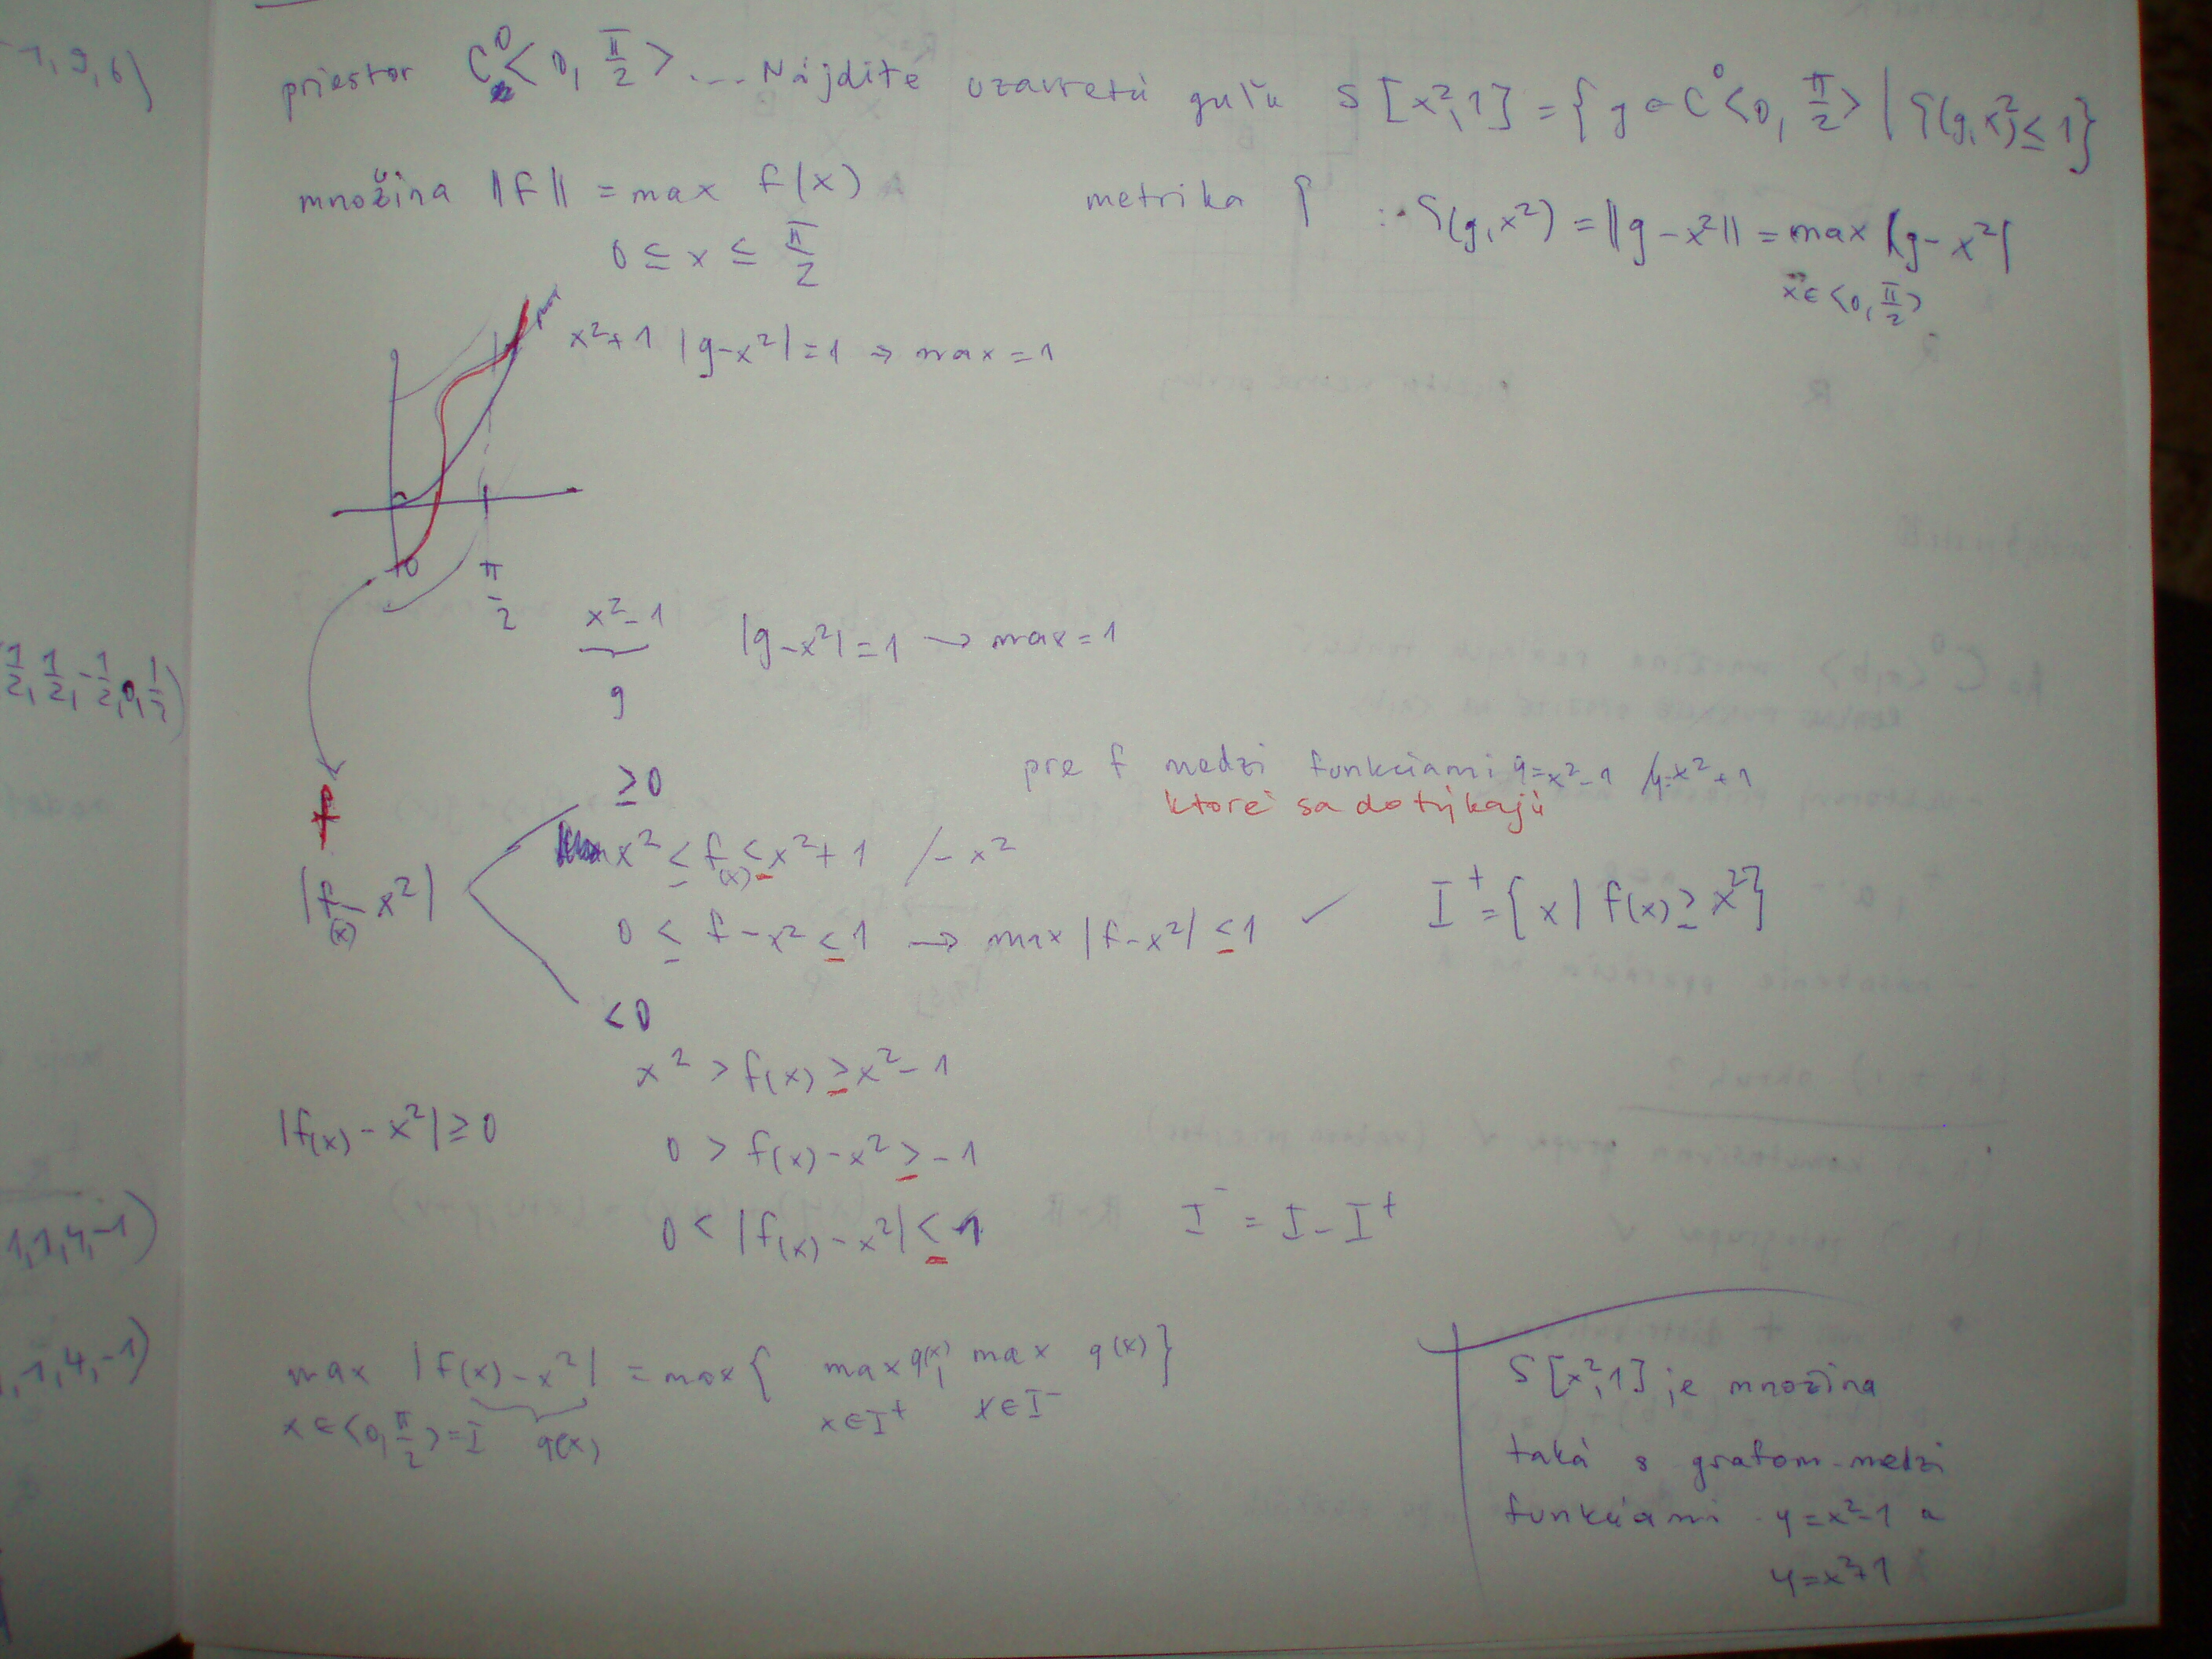 1, 9, 6)
priestor C⁰<0, π/2> ... Nájdite uzavretú guľu S[x²,1] = {g ∈ C⁰<0, π/2> | ρ(g,x²) ≤ 1}
množina ||f|| = max f(x)
0 ≤ x ≤ π/2
metrika ρ : ρ(g,x²) = ||g-x²|| = max |g-x²|
x ∈ <0, π/2>
x²+1 |g-x²| = 1 → max = 1
π/2
x²-1 |g-x²| = 1 → max = 1
g
1/2, 1/2, -1/2, 0, 1/2)
≥0
pre f medzi funkciami y=x²-1 / y=x²+1
ktoré sa dotýkajú
f
x² ≤ f(x) ≤ x²+1 /-x²
|f(x) - x²|
I⁺ = {x | f(x) ≥ x²}
0 ≤ f-x² ≤ 1 → max |f-x²| ≤ 1 ✓
<0
x² > f(x) ≥ x²-1
|f(x) - x²| ≥ 0
0 > f(x) - x² ≥ -1
0 < |f(x) - x²| ≤ 1 I⁻ = I - I⁺
1, 4, -1)
max |f(x) - x²| = max { max g(x), max g(x)}
x ∈ <0, π/2> = I g(x) x ∈ I⁺ x ∈ I⁻
S[x²,1] je množina
taká s grafom medzi
funkciami y=x²-1 a
y=x²+1